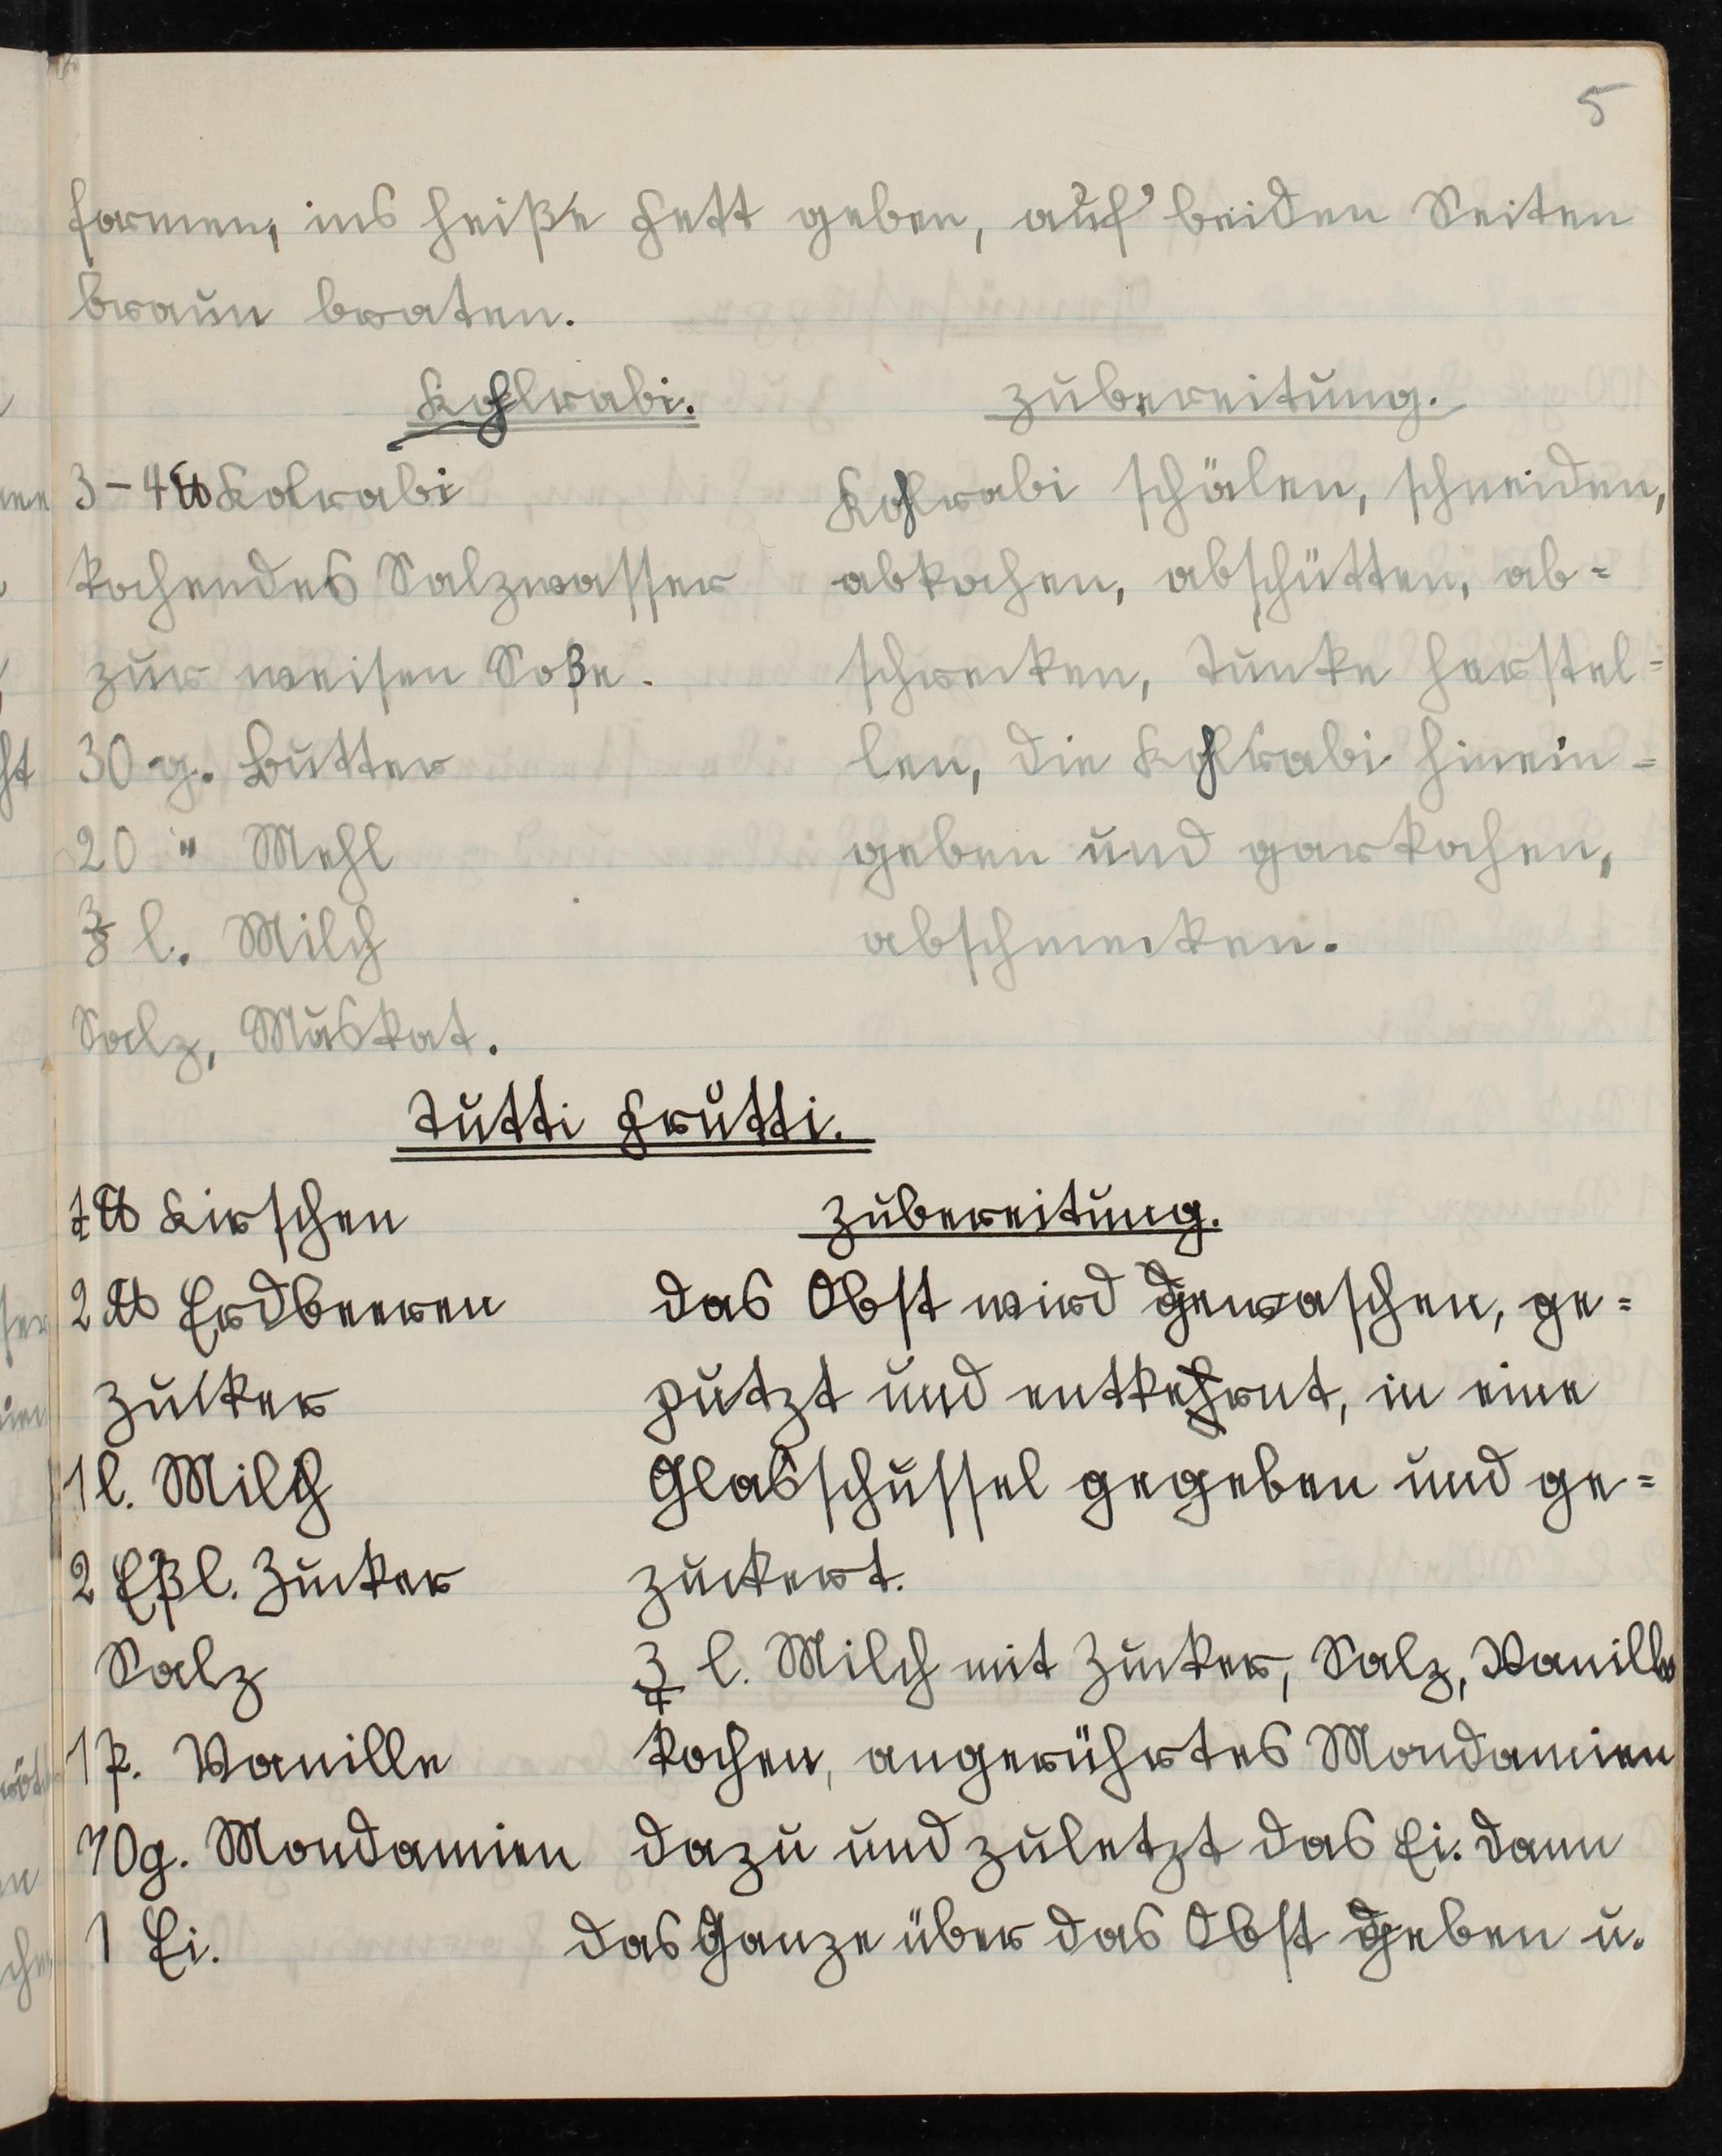 5
formen, ins heiße Fett geben, auf beiden Seiten
braun braten.
Kohlrabi.
3-4 ℔ Kolrabi
kochendes Salzwasser
zur weisen Soße.
30 g. Butter
20 " Mehl
3/8 l. Milch
Salz, Muskat.
Zubereitung.
Kohlrabi schälen, schneiden,
abkochen, abschütten, ab=
schrecken, Tunke herstel=
len, die Kohlrabi hinein=
geben und garkochen,
abschmecken.
Tutti Frutti.
1 ℔ Kirschen
2 ℔ Erdbeeren
Zucker
1 l. Milch
2 Eßl. Zucker
Salz
1 P. Vanille
70 g. Mondamien
1 Ei.
Zubereitung.
Das Obst wird gewaschen, ge=
putzt und entkehrnt, in eine
Glasschussel gegeben und ge=
zuckert.
3/4 l. Milch mit Zucker, Salz, Vanille
kochen, angerührtes Mondamien
dazu und zuletzt das Ei. Dann
das Ganze über das Obst geben u.